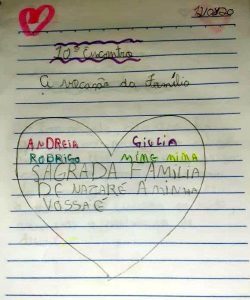 12/09/20
10º Encontro
A vocação da Família
ANDREIA GIULIA
RODRIGO MINE MINA
SAGRADA FAMILIA
DE NAZARE A MINHA
VOSSA É